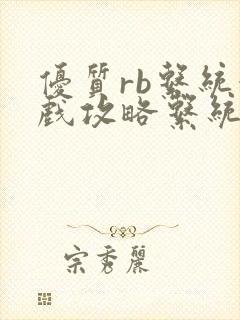 優質rb繫統
戲攻略繫統
宗秀麗